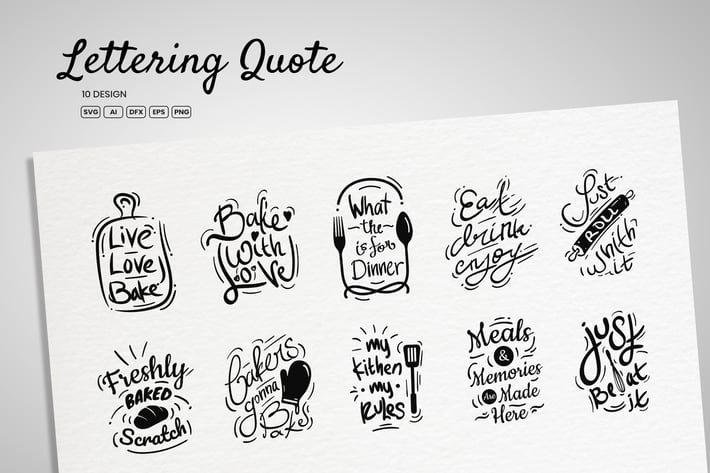 Lettering Quote
10 DESIGN
SVG AI DFX EPS PNG
Live
Love
Bake
Bake
with
Love
What
-the-
is for
Dinner
Eat
drink
enjoy
Just
ROLL
whith
it
Freshly
BAKED
Scratch
Bakers
gonna
Bake
my
Kithen
my
RULES
Meals
&
Memories
Are Made
Here
just
Beat
it